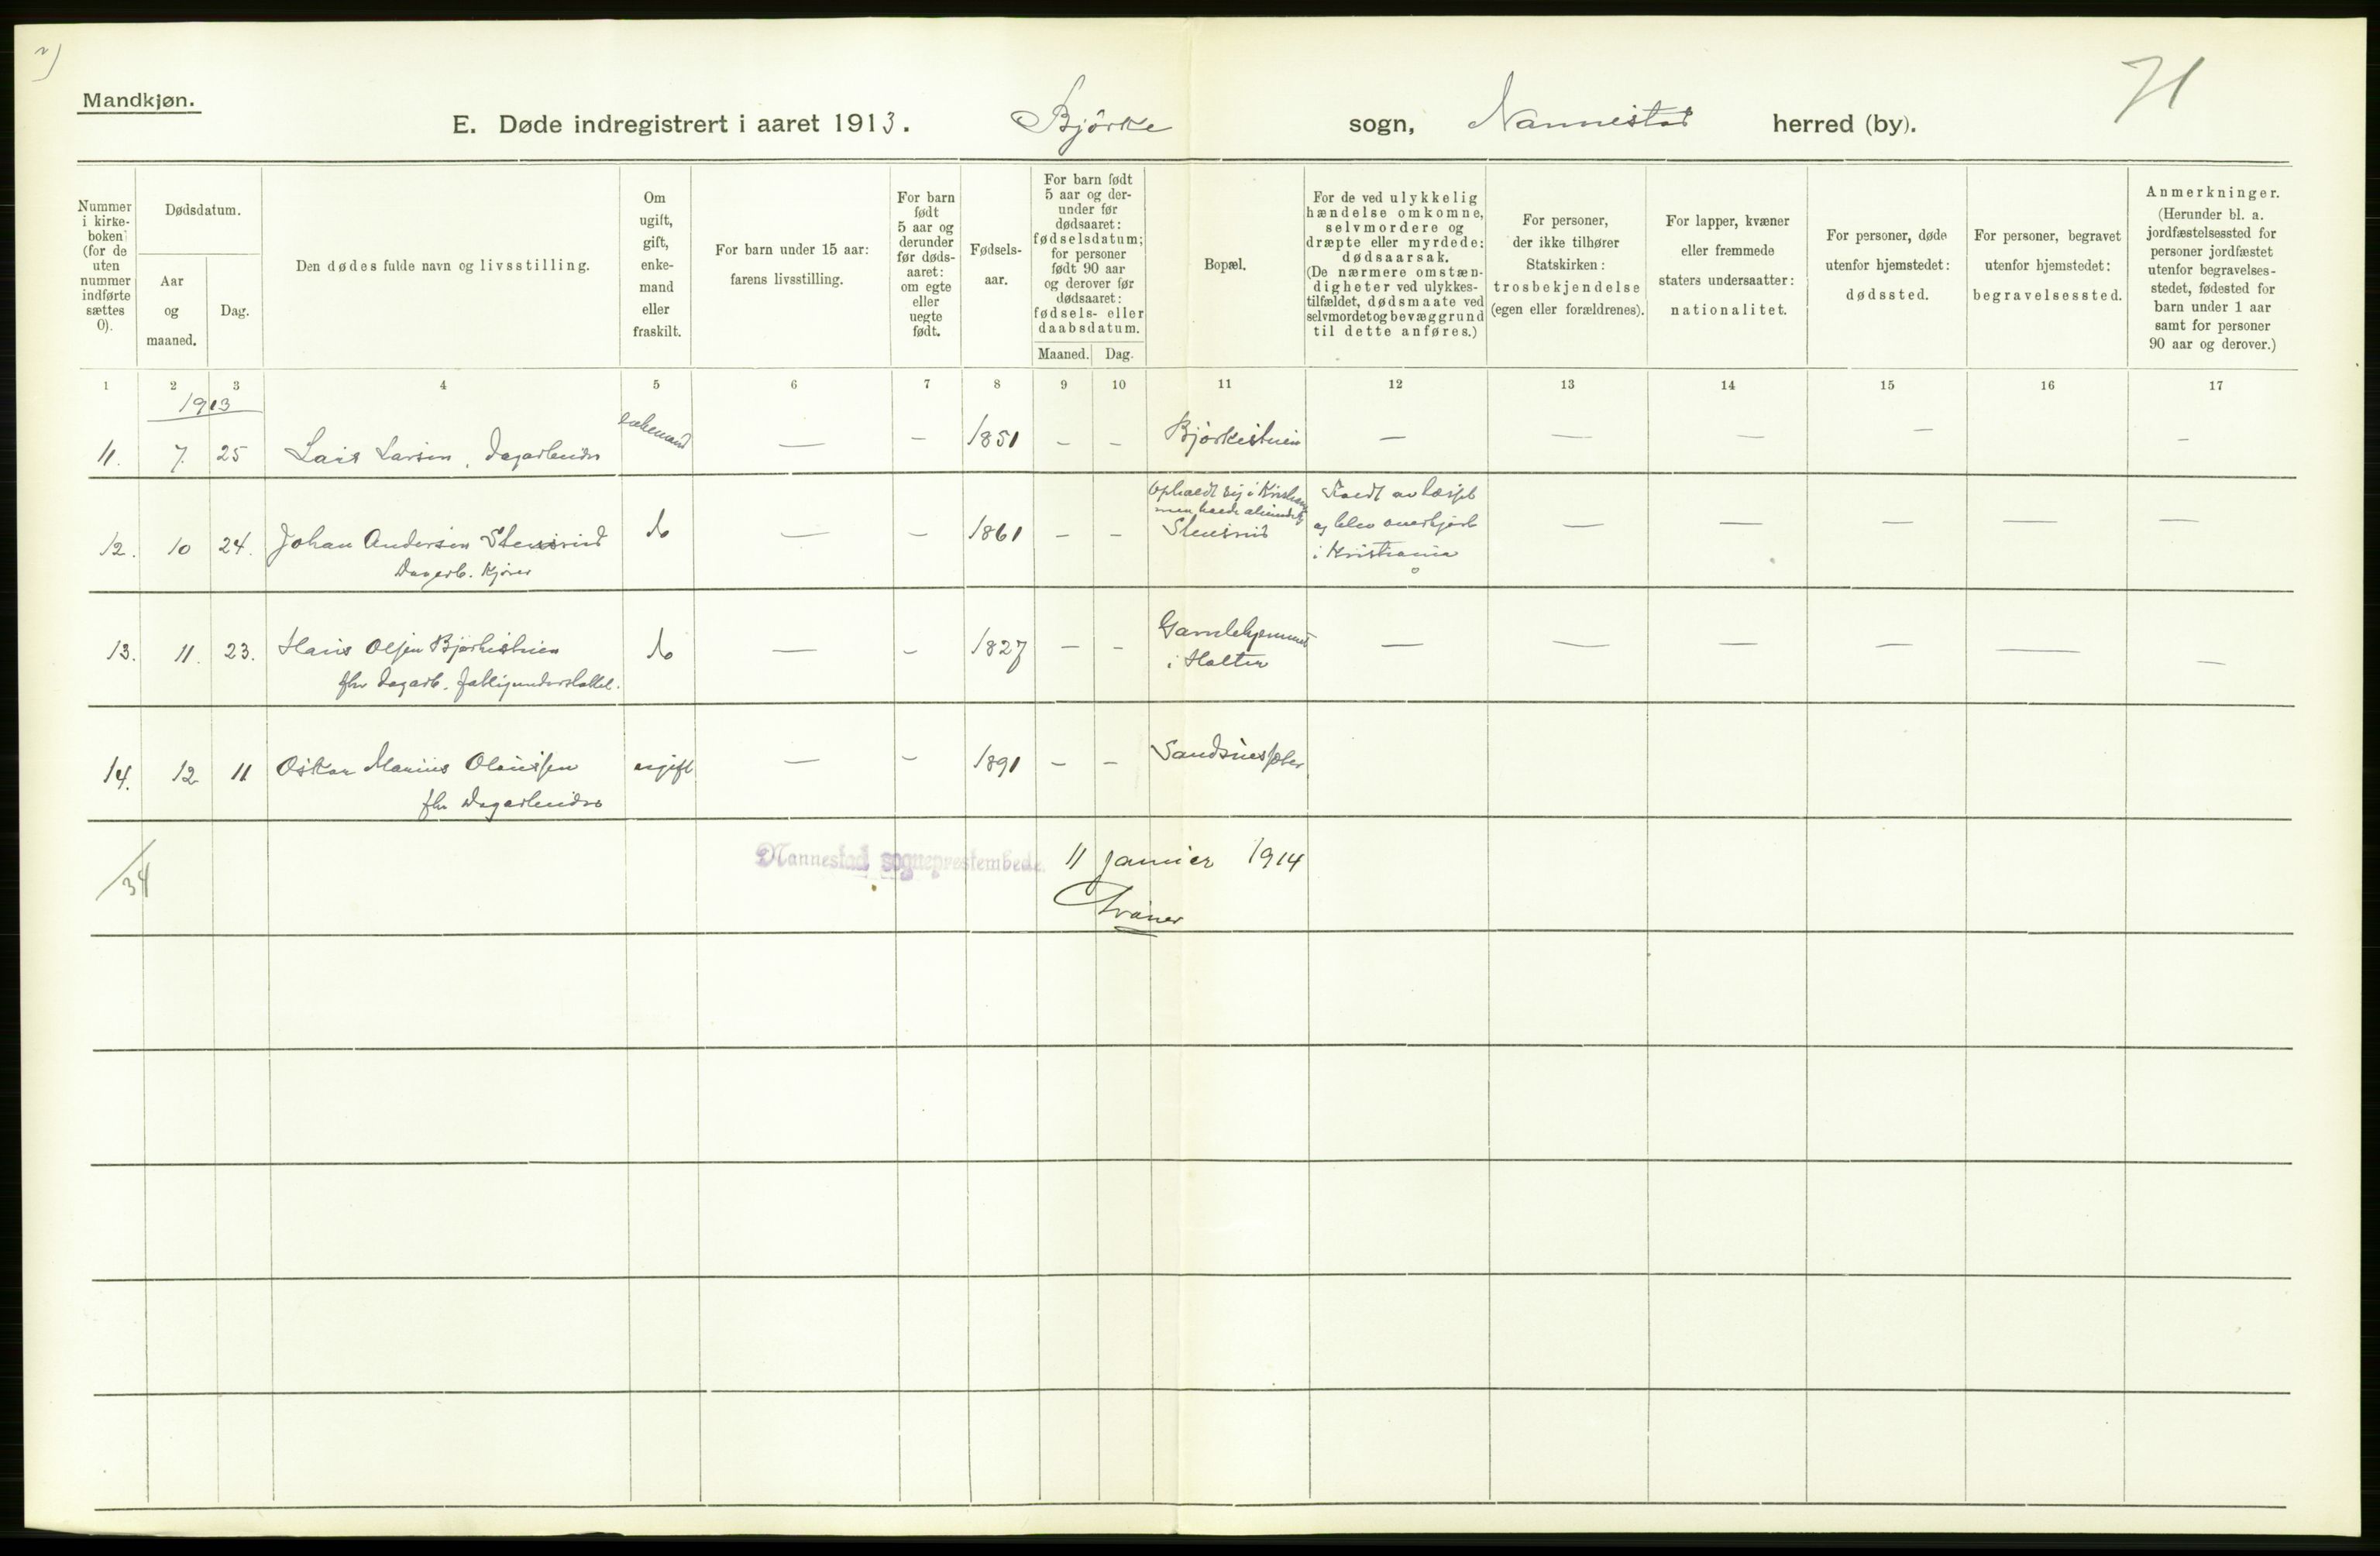 2)
71
Mandkjøn.
E. Døde indregistrert i aaret 1913. Bjørke sogn, Nannestad herred (by).
Nummer i kirke-boken (for de uten nummer indførte sættes 0).
Dødsdatum.
Aar og maaned.
Dag.
Den dødes fulde navn og livsstilling.
Om ugift, gift, enke-mand eller fraskilt.
For barn under 15 aar: farens livsstilling.
For barn født 5 aar og derunder før døds-aaret: om egte eller uegte født.
Fødsels-aar.
For barn født 5 aar og der-under før dødsaaret: fødselsdatum; for personer født 90 aar og derover før dødsaaret: fødsels- eller daabsdatum.
Maaned. Dag.
Bopæl.
For de ved ulykkelig hændelse omkomne, selvmordere og dræpte eller myrdede: dødsaarsak. (De nærmere omstæn-digheter ved ulykkes-tilfældet, dødsmaate ved selvmordet og bevæggrund til dette anføres.)
For personer, der ikke tilhører Statskirken: trosbekjendelse (egen eller forældrenes).
For lapper, kvæner eller fremmede staters undersaatter: nationalitet.
For personer, døde utenfor hjemstedet: dødssted.
For personer, begravet utenfor hjemstedet: begravelsessted.
Anmerkninger. (Herunder bl. a. jordfæstelsessted for personer jordfæstet utenfor begravelses-stedet, fødested for barn under 1 aar samt for personer 90 aar og derover.)
1 2 3 4 5 6 7 8 9 10 11 12 13 14 15 16 17
1913
11. 7. 25 Lars Larsen, dagarbeider enkemand — — 1851 – – Bjørkestuen — — — — –
12. 10 24. Johan Andersen Stensrud do — – 1861 – – Stensrud
Dagarb. Kjører
opholdt sig i Kristiania
men hadde
Faldt av læsset
og blev overkjørt
i Kristiania
— — — — —
13. 11. 23. Hans Olsen Bjørkestuen do — – 1827 – – Gamlehjemmet
i Holter
fhv dagarb. fattigunderstøttet.
— — — — — —
14. 12 11 Oskar Marius Olaussen ugift — – 1891 – –
fhv Dagarbeider
Nannestad sogneprestembede. 11 januar 1914
/34